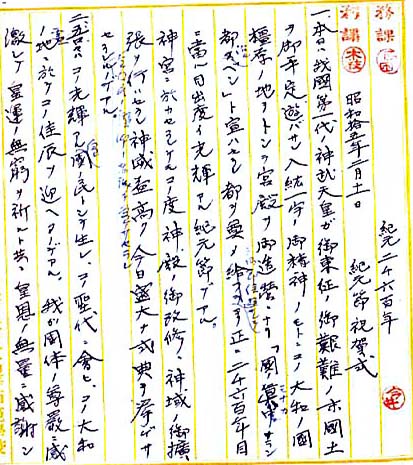 務課
務課
紀元二千六百年
紀元節祝賀式
昭和拾五年二月十一日
一、本日ハ我國第一代神武天皇ガ御東征ノ御艱難ノ末國土
ヲ御平定遊バサレ八紘一宇ノ御精神ノモトニコノ大和ノ國
橿原ノ地ヲトシテ宮殿ヲ御造営ニナリ
都スベシト宣ハセラレ都ヲ奠メ給フテヨリ正ニ二千六百年目
ニ當ル目出度イ光輝アル紀元節デアル。
神宮ニ於カセラレテハコノ度神殿ノ御改修、神域ノ御擴
張ヲ行ハセラレ神威益高ク今日盛大ナ式典ヲ挙ゲサ
セラレル
二、吾ラコノ光輝アル國ノ民トシテ生レ、コノ聖代ニ會ヒ、コノ大和
ノ地ニ於テコノ佳辰ヲ迎ヘルノデアル。我ガ國体ノ尊嚴ニ感
激シテ皇運ノ無窮ヲ祈ルト共ニ皇恩ノ無量ニ感謝シ